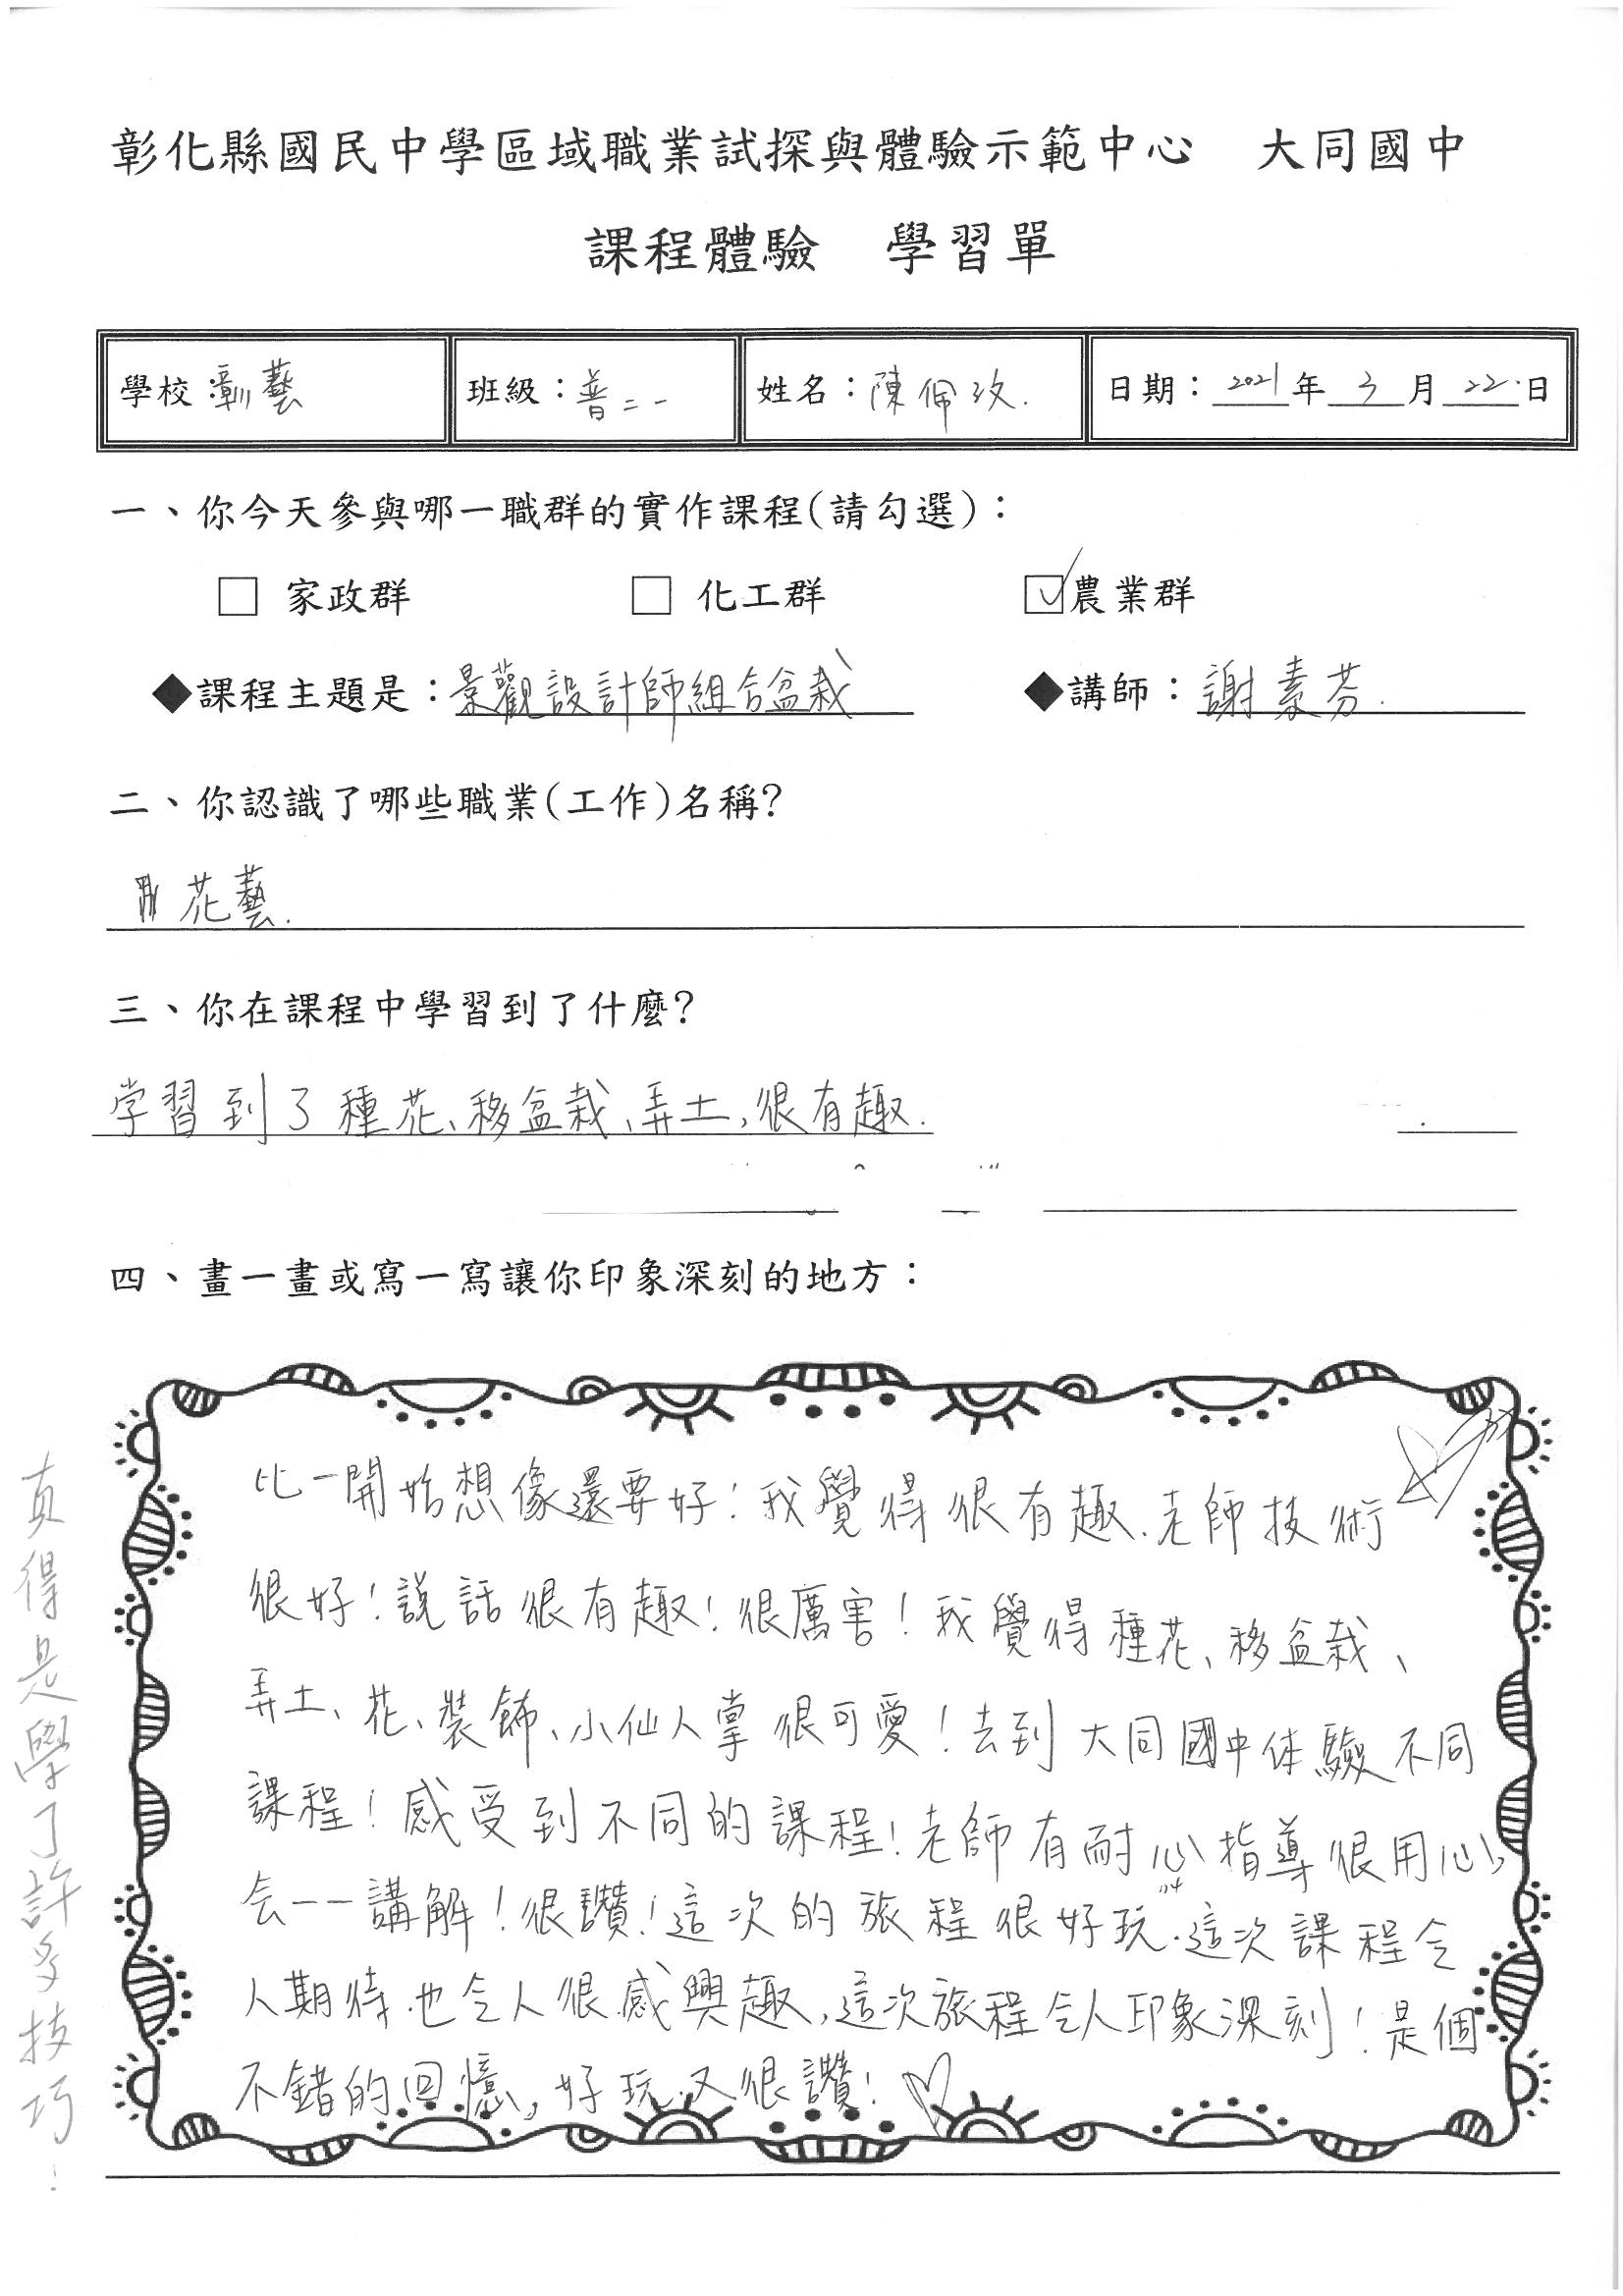 彰化縣國民中學區域職業試探與體驗示範中心　大同國中
課程體驗　學習單
學校：彰藝　班級：普二一　姓名：陳佩玟.　日期：2021年3月22.日
一、你今天參與哪一職群的實作課程(請勾選)：
□ 家政群　□ 化工群　☑農業群
◆課程主題是：景觀設計師組合盆栽　◆講師：謝素芬.
二、你認識了哪些職業(工作)名稱?
花藝.
三、你在課程中學習到了什麼?
学習到了種花、移盆栽、弄土,很有趣.
四、畫一畫或寫一寫讓你印象深刻的地方：
比一開始想像還要好!我覺得很有趣.老師技術
很好!說話很有趣!很厲害!我覺得種花、移盆栽、
弄土、花、裝飾、小仙人掌很可愛!去到大同國中体驗不同
課程!感受到不同的課程!老師有耐心指導很用心,
会一一講解!很讚!這次的旅程很好玩.這次課程令
人期待.也令人很感興趣,這次旅程令人印象深刻!是個
不錯的回憶,好玩又很讚!
真得是學了許多技巧!